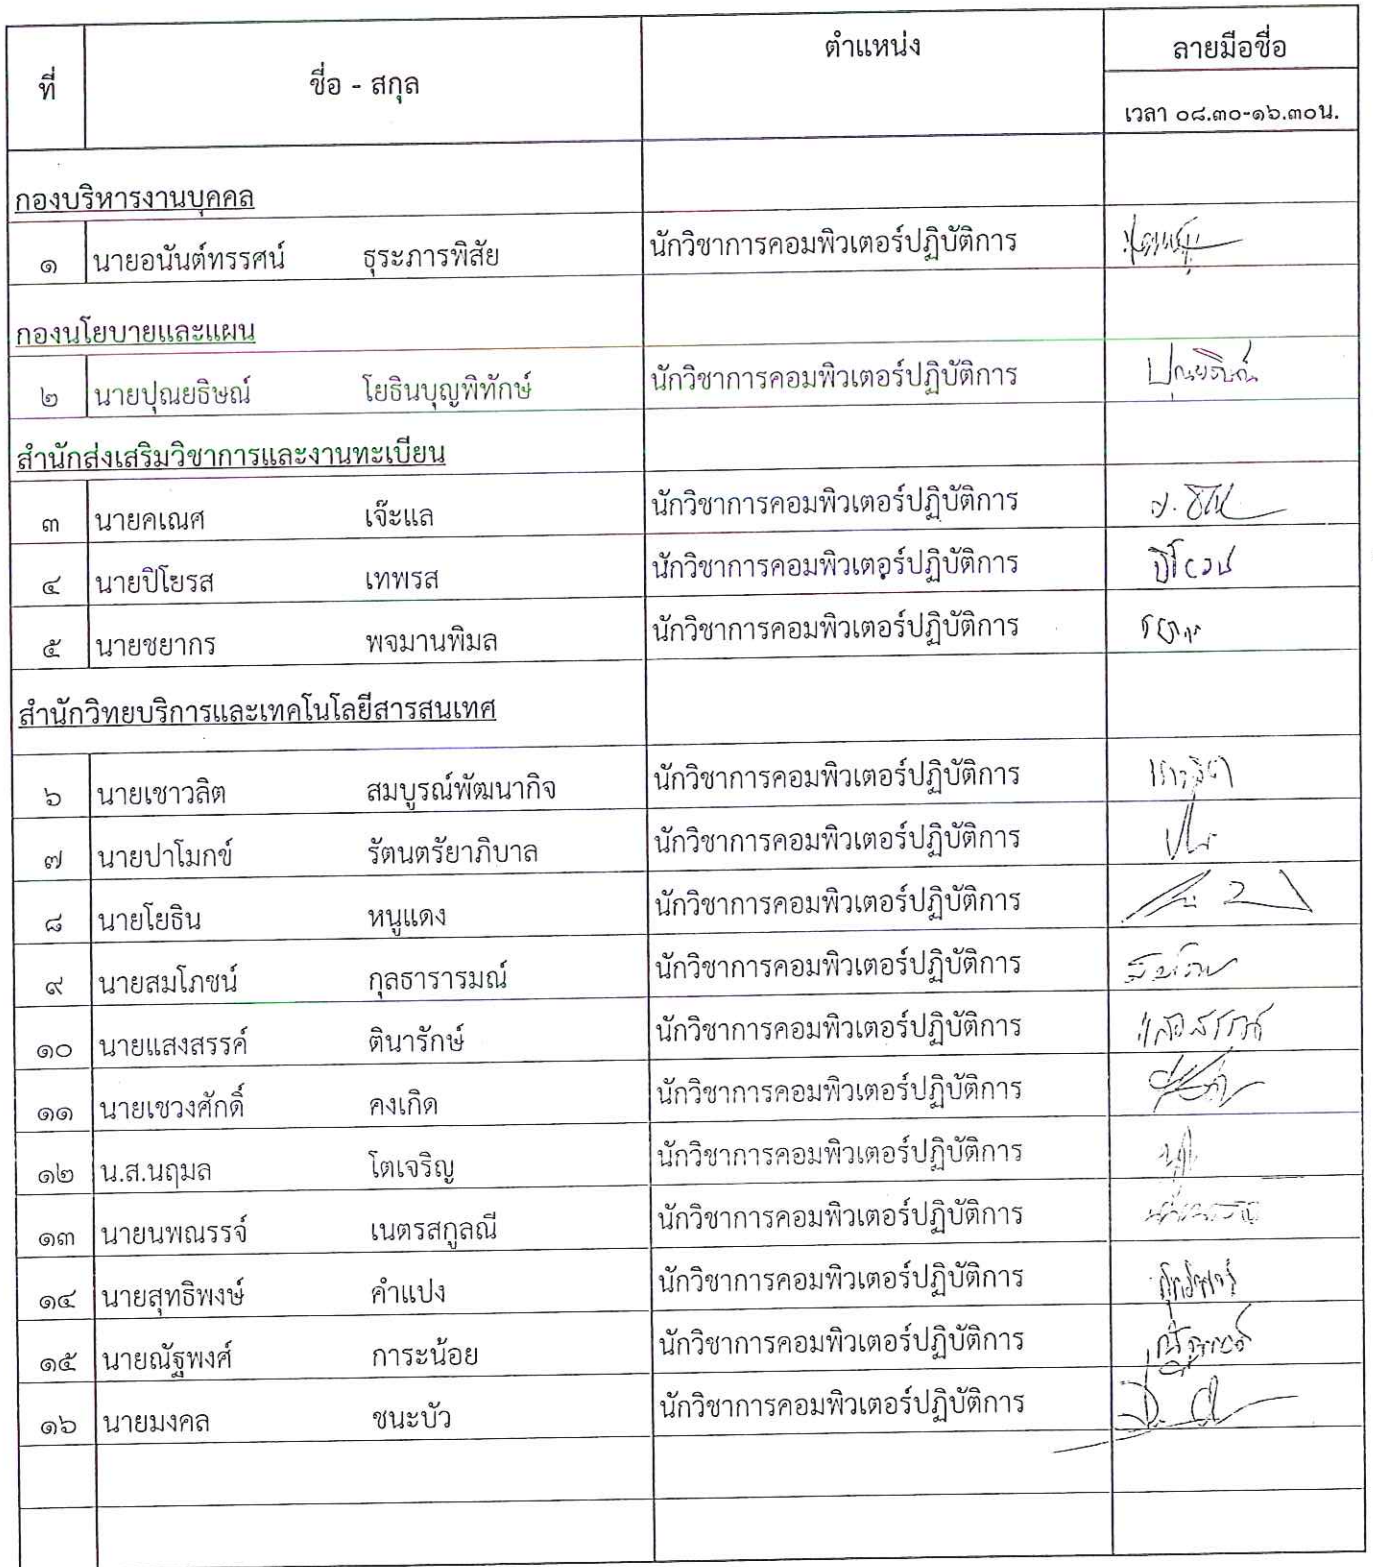 ที่ ชื่อ - สกุล ตำแหน่ง ลายมือชื่อ
เวลา ๐๘.๓๐-๑๖.๓๐น.
กองบริหารงานบุคคล
๑ นายอนันต์ทรรศน์ ธุระภารพิสัย นักวิชาการคอมพิวเตอร์ปฏิบัติการ
กองนโยบายและแผน
๒ นายปุณยธิษณ์ โยธินบุญพิทักษ์ นักวิชาการคอมพิวเตอร์ปฏิบัติการ
สำนักส่งเสริมวิชาการและงานทะเบียน
๓ นายคเณศ เจ๊ะแล นักวิชาการคอมพิวเตอร์ปฏิบัติการ
๔ นายปิโยรส เทพรส นักวิชาการคอมพิวเตอร์ปฏิบัติการ
๕ นายชยากร พจมานพิมล นักวิชาการคอมพิวเตอร์ปฏิบัติการ
สำนักวิทยบริการและเทคโนโลยีสารสนเทศ
๖ นายเชาวลิต สมบูรณ์พัฒนากิจ นักวิชาการคอมพิวเตอร์ปฏิบัติการ
๗ นายปาโมกข์ รัตนตรัยาภิบาล นักวิชาการคอมพิวเตอร์ปฏิบัติการ
๘ นายโยธิน หนูแดง นักวิชาการคอมพิวเตอร์ปฏิบัติการ
๙ นายสมโภชน์ กุลธารารมณ์ นักวิชาการคอมพิวเตอร์ปฏิบัติการ
๑๐ นายแสงสรรค์ ตินารักษ์ นักวิชาการคอมพิวเตอร์ปฏิบัติการ แสงสรรค์
๑๑ นายเชวงศักดิ์ คงเกิด นักวิชาการคอมพิวเตอร์ปฏิบัติการ
๑๒ น.ส.นฤมล โตเจริญ นักวิชาการคอมพิวเตอร์ปฏิบัติการ
๑๓ นายนพณรรจ์ เนตรสกูลณี นักวิชาการคอมพิวเตอร์ปฏิบัติการ
๑๔ นายสุทธิพงษ์ คำแปง นักวิชาการคอมพิวเตอร์ปฏิบัติการ
๑๕ นายณัฐพงศ์ การะน้อย นักวิชาการคอมพิวเตอร์ปฏิบัติการ
๑๖ นายมงคล ชนะบัว นักวิชาการคอมพิวเตอร์ปฏิบัติการ